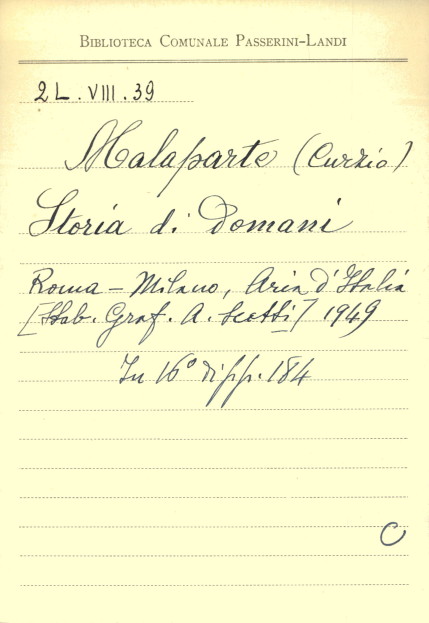 BIBLIOTECA COMUNALE PASSERINI-LANDI
2 L. VIII. 39
Malaparte (Curzio)
Storia di Domani
Roma - Milano, Aria d'Italia
[Stab. Graf. A. Scotti] 1949
In 16° di pp. 184
C